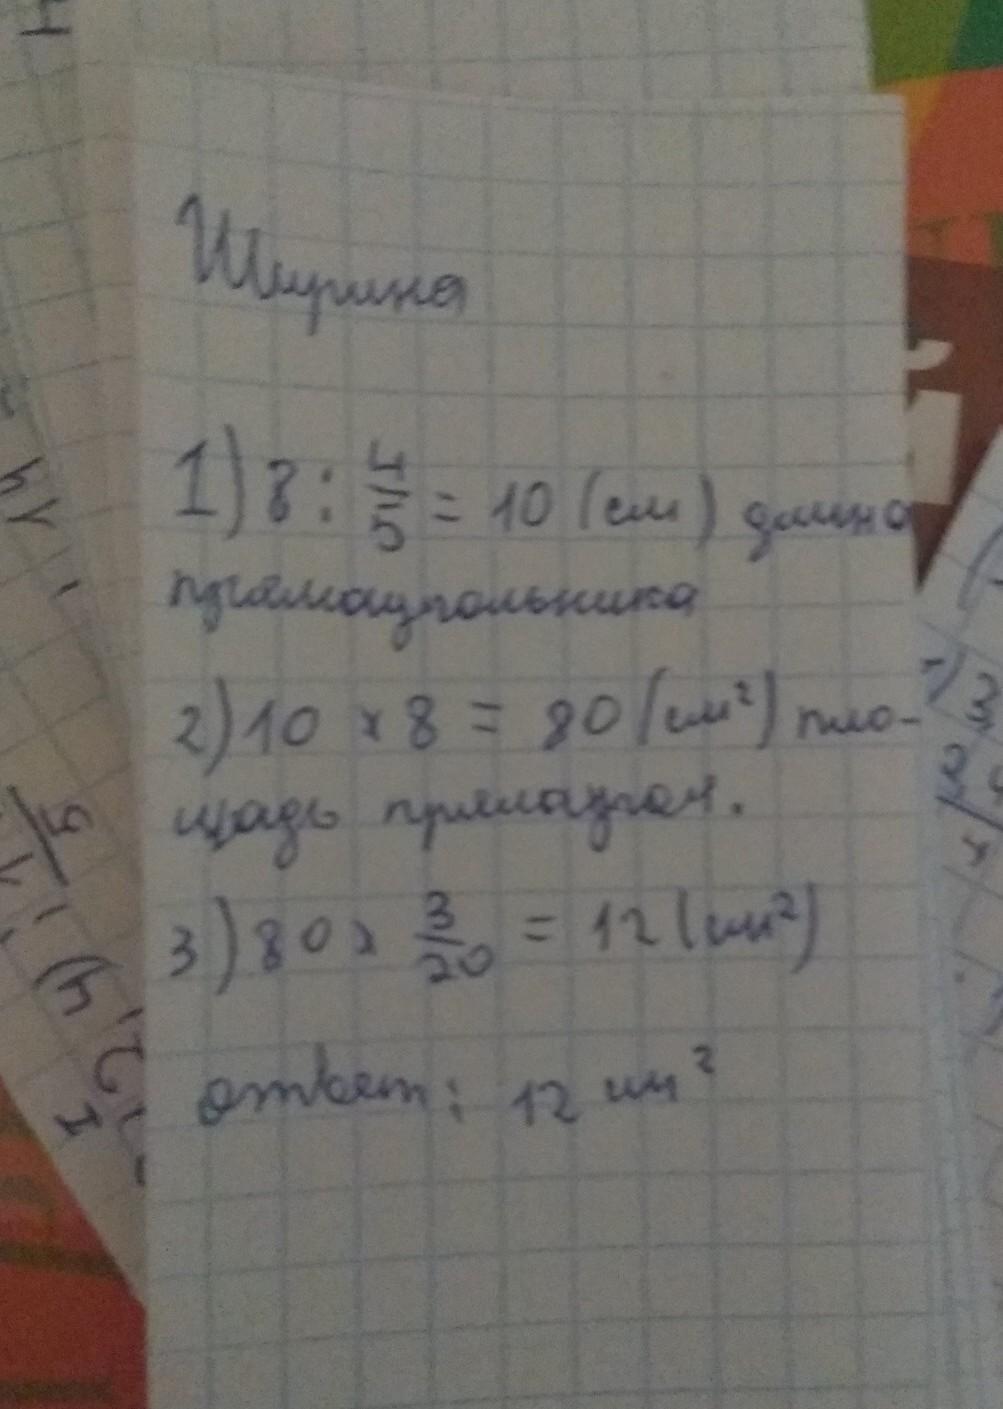 Ширина
1) 8 : 4/5 = 10 (см) длина
прямоугольника
2) 10 × 8 = 80 (см²) пло-
щадь прямоугол.
3) 80 × 3/20 = 12 (см²)
ответ: 12 см²